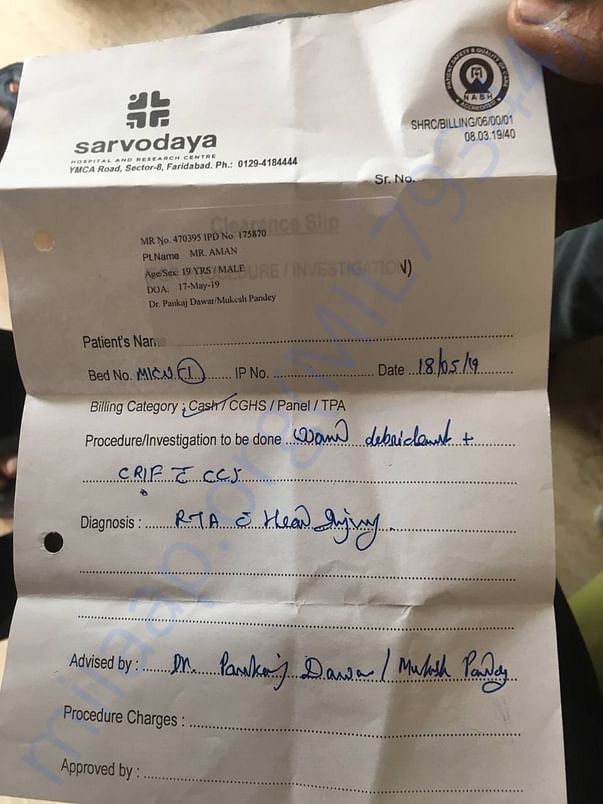 sarvodaya
HOSPITAL AND RESEARCH CENTRE
YMCA Road, Sector-8, Faridabad. Ph.: 0129-4184444
PATIENT SAFETY & QUALITY OF CARE
NABH
ACCREDITED
SHRC/BILLING/06/00/01
08.03.19/40
Sr. No.
Clearance Slip
PROCEDURE / INVESTIGATION
MR No. 470395 IPD No. 175870
Pt.Name MR. AMAN
Age/Sex: 19 YRS / MALE
DOA: 17-May-19
Dr. Pankaj Dawar/Mukesh Pandey
Patient's Name
Bed No. MICU IP No. Date 18/05/19
Billing Category : Cash / CGHS / Panel / TPA
Procedure/Investigation to be done wound debridement +
CRIF c CCS
Diagnosis : RTA c Head Injury
Advised by : Dr. Pankaj Dawar / Mukesh Pandey
Procedure Charges :
Approved by :
milaap.org/MIL79344